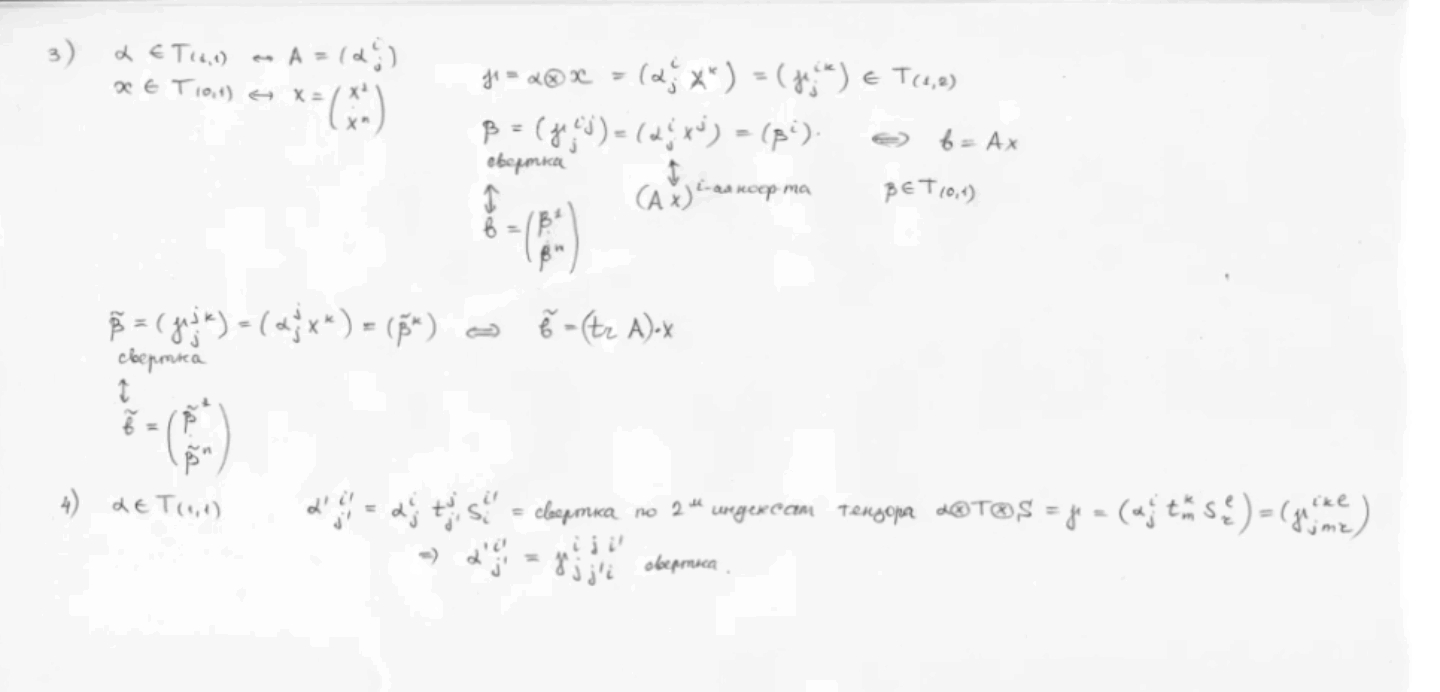 3) α ∈ T(1,1) ↔ A = (α^i_j)
x ∈ T(0,1) ↔ x = (x^1 ⋮ x^n)
γ = α⊗x = (α^i_j x^k) = (γ^{ik}_j) ∈ T(1,2)
β = (γ^{ij}_j) = (α^i_j x^j) = (β^i). ⟺ b = Ax
свертка
↕ ↕
(Ax)^{i-ая коор-та} β ∈ T(0,1)
b = (β^1 ⋮ β^n)
β̃ = (γ^{jk}_j) = (α^j_j x^k) = (β̃^k) ⟺ b̃ = (tr A)·x
свертка
↕
b̃ = (β̃^1 ⋮ β̃^n)
4) α ∈ T(1,1) α'^{i'}_{j'} = α^i_j t^j_{j'} s^{i'}_i = свертка по 2^м индексам тензора α⊗T⊗S = γ = (α^i_j t^k_m s^l_r) = (γ^{ikl}_{jmr})
⇒ α'^{i'}_{j'} = γ^{i j i'}_{j j' i} свертка.